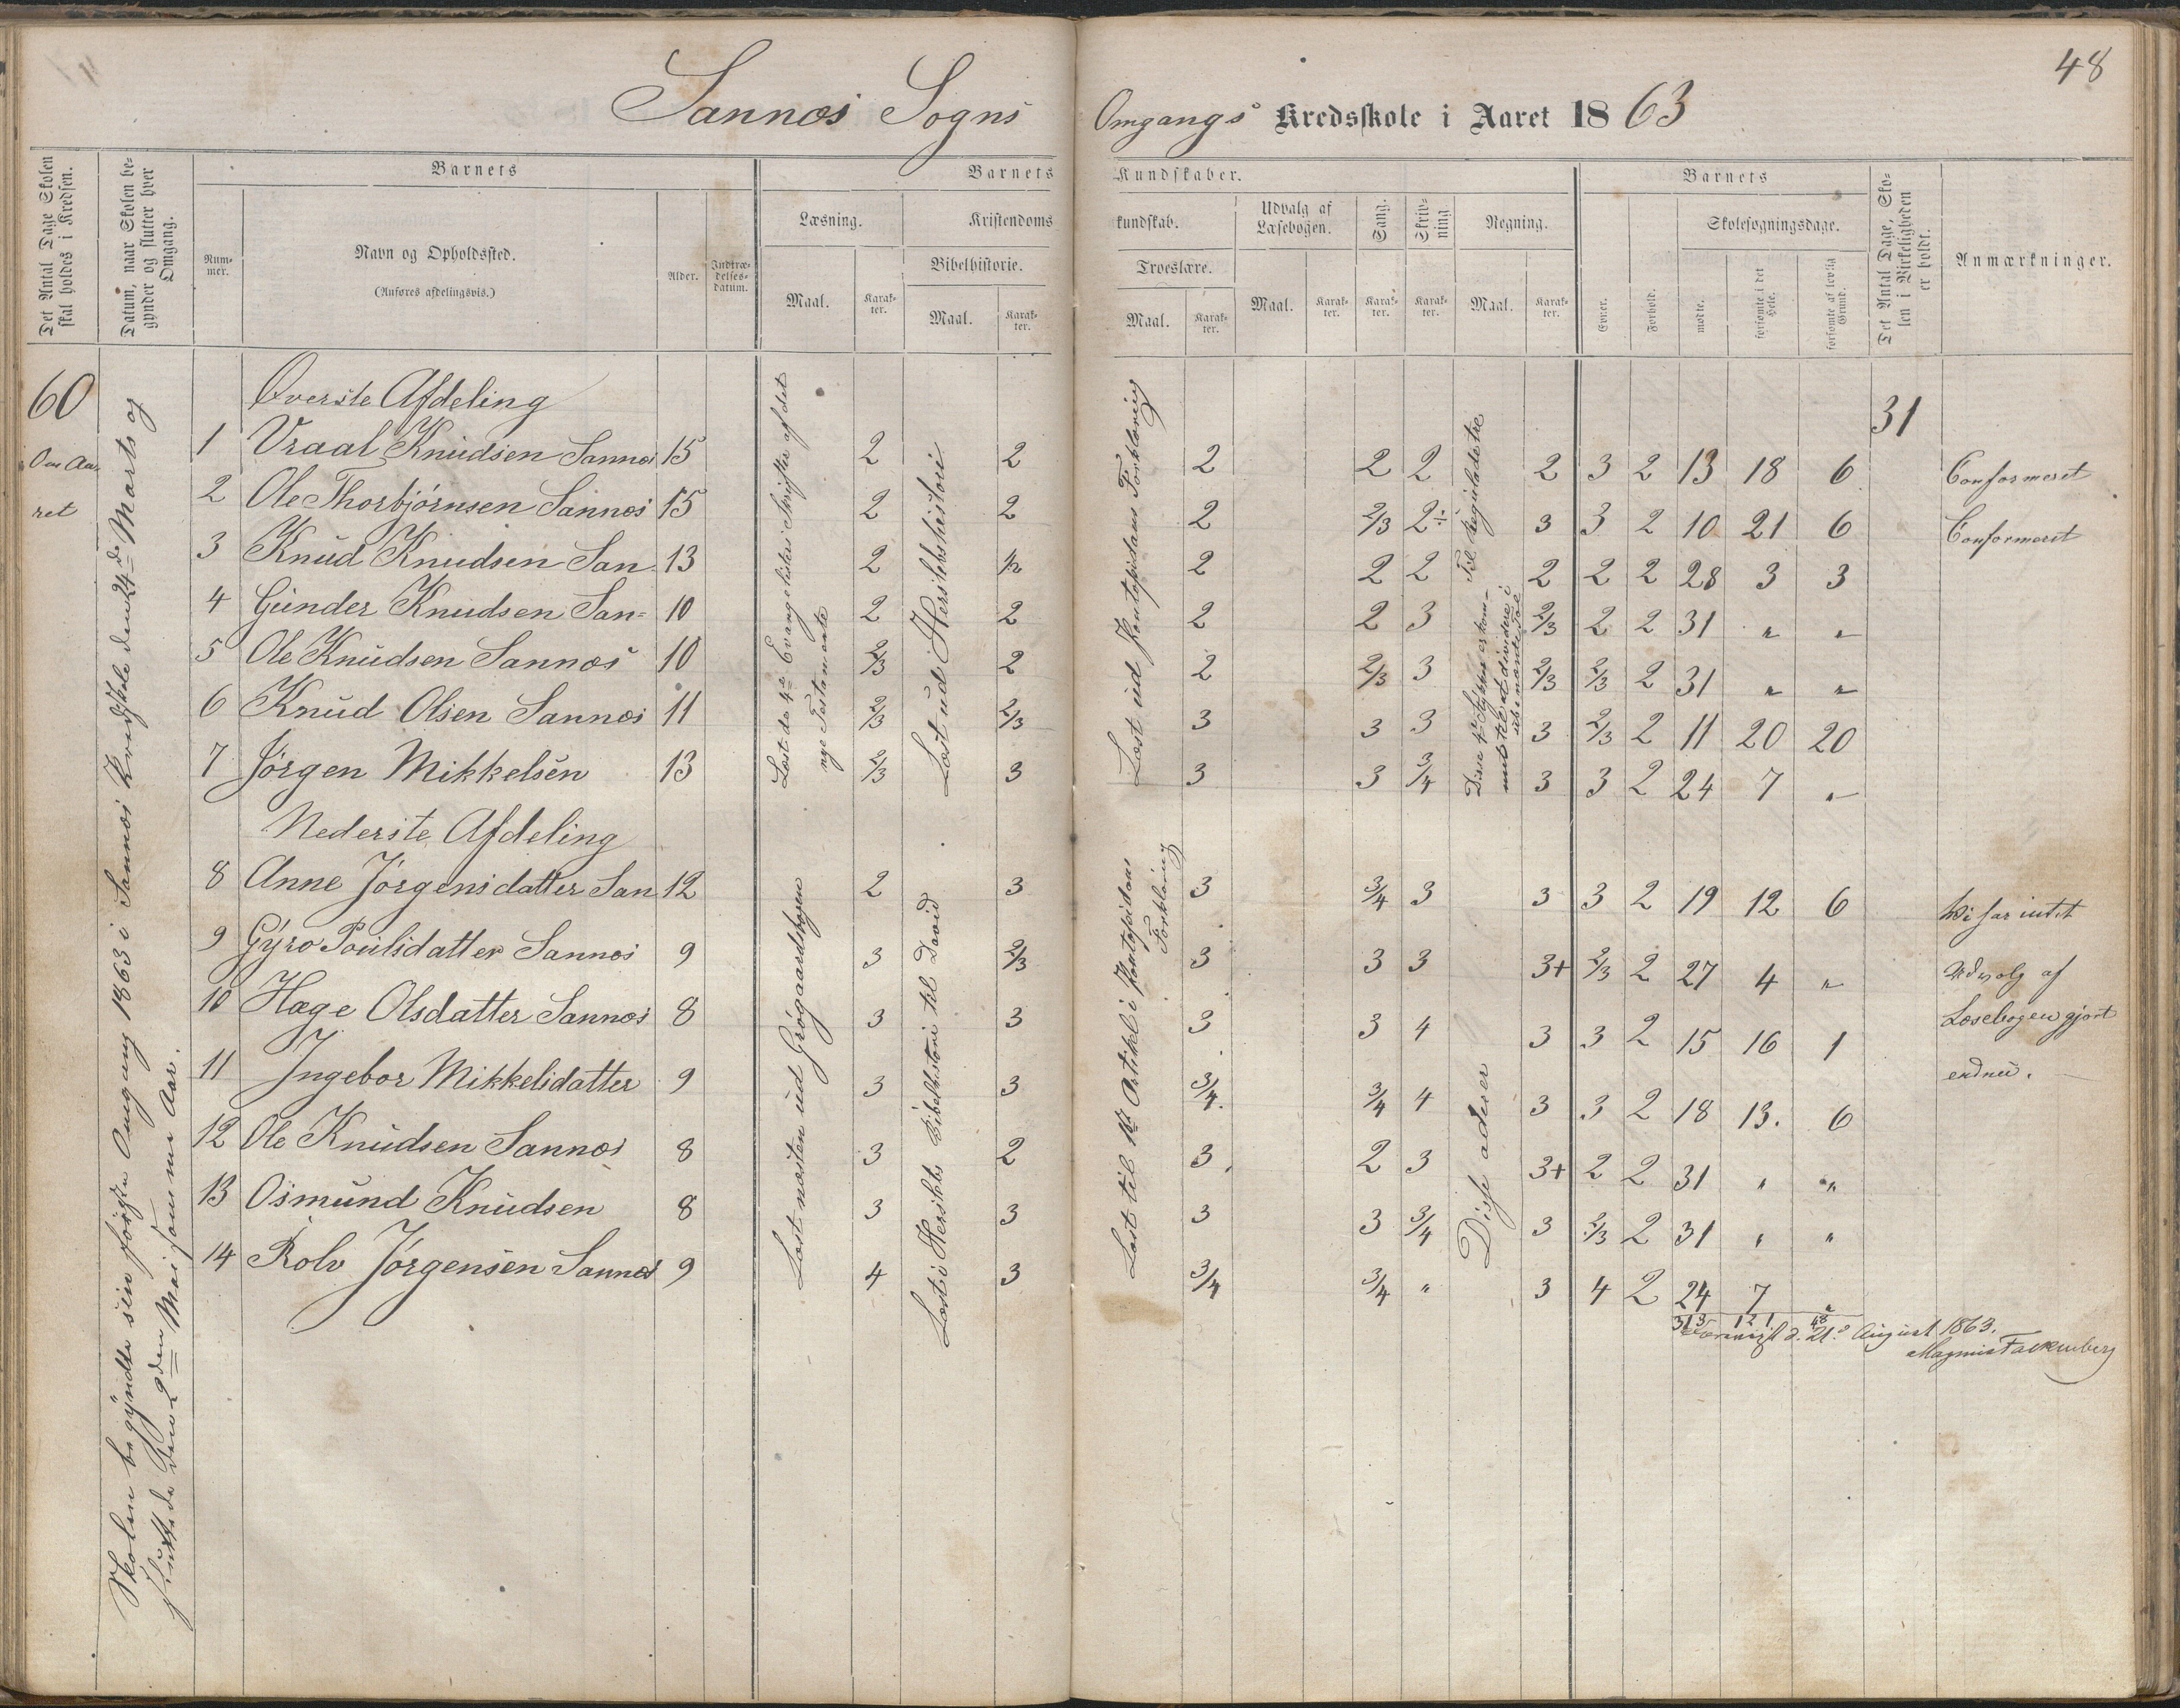 48
Sannæs Sogns Omgangs Kredsskole i Aaret 1863
Det Antal Dage Skolen skal holdes i Kredsen.
Datum, naar Skolen begynder og slutter hver Omgang.
Barnets
Num-mer.
Navn og Opholdssted.
(Anføres afdelingsvis.)
Alder.
Indtræ-delses-datum.
Barnets Kundskaber.
Læsning.
Maal.
Karak-ter.
Kristendomskundskab.
Bibelhistorie.
Maal.
Karak-ter.
Troeslære.
Maal.
Karak-ter.
Udvalg af Læsebogen.
Maal.
Karak-ter.
Sang.
Karak-ter.
Skriv-ning
Karak-ter.
Regning.
Maal.
Karak-ter.
Barnets
Evner.
Forhold.
Skolesøgningsdage.
mødte.
forsømte i det Hele.
forsømte af lovlig Grund.
Det Antal Dage, Sko-len i Virkeligheden er holdt.
Anmærkninger.
60
Om Aa-
ret
Skolen begyndte sin første Omgang 1863 i Sannæs Kredsskole den 24de Marts og
sluttede den 2den Mai samme Aar.
Øverste Afdeling
31
1 Vraal Knudsen Sannæs 15 2 2 2 2 2 2 3 2 13 18 6 Confermeret
2 Ole Thorbjørnsen Sannæs 15 2 2 2 2/3 2÷ 3 3 2 10 21 6 Confermeret
3 Knud Knudsen San 13 2 2 2 2 2 2 2 2 28 3 3
4 Gunder Knudsen San= 10 2 2 2 2 3 2/3 2 2 31 " "
5 Ole Knudsen Sannæs 10 2/3 2 2 2/3 3 2/3 2/3 2 31 " "
6 Knud Olsen Sannæs 11 2/3 2/3 3 3 3 3 2/3 2 11 20 20
7 Jørgen Mikkelsen 13 2/3 3 3 3 3/4 3 3 2 24 7 "
Læst de 4re Evangelisters Skrifter af det
nye Testamente
Læst ud Herslebs historie
Læst ud Pontopidans Forklaring
Til Reguladetre
Disse 4re Stykker er kom-
met til at dividere i
ubenævnte Tal
Nederste Afdeling
8 Anne Jørgensdatter San 12 2 3 3 3/4 3 3 3 2 19 12 6 Vi har intet
9 Gyro Poulsdatter Sannæs 9 3 2/3 3 3 3 3+ 2/3 2 27 4 " Udvalg af
10 Hæge Olsdatter Sannæs 8 3 3 3 3 4 3 3 2 15 16 1 Læsebogen gjort
11 Ingebor Mikkelsdatter 9 3 3 3/4. 3/4 4 3 3 2 18 13. 6 endnu.
12 Ole Knudsen Sannæs 8 3 2 3. 2 3 3+ 2 2 31 " "
13 Osmund Knudsen 8 3 3 3 3 3/4 3 2/3 2 31 " "
14 Rolv Jørgensen Sannæs 9 4 3 3/4 3/4 " 3 4 2 24 7 "
Læst næsten ud Grøgaardsbogen
Læst i Herslebs Bibelhistorie til David
Læst til 1ste Artikel i Pontopidans
Forklaring
Disse aderer
313 121 48
d. 21de August 1863.
Magnus Falkenberg